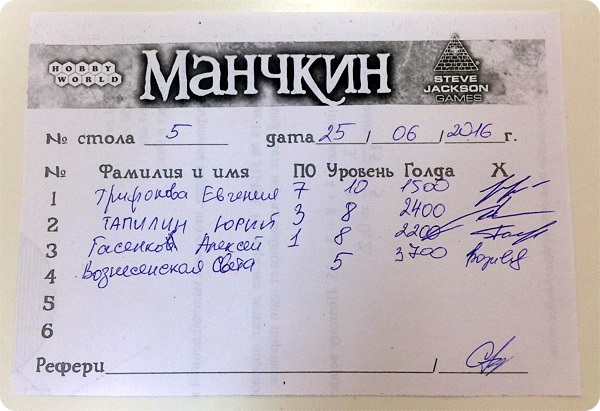 HOBBY WORLD
Манчкин
STEVE JACKSON GAMES
№ стола 5 дата 25 / 06 / 2016 г.
№ Фамилия и имя ПО Уровень Голда X
1 Трифонова Евгения 7 10 1500
2 ТАПИЛИН ЮРИЙ 3 8 2400
3 Гасенков Алексей 1 8 2200
4 Вознесенская Света 5 3700
5
6
Рефери /